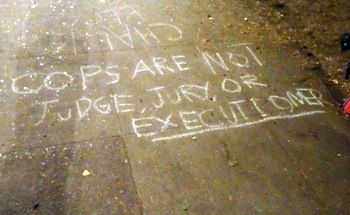 COPS ARE NOT
JUDGE JURY OR
EXECUTIONER